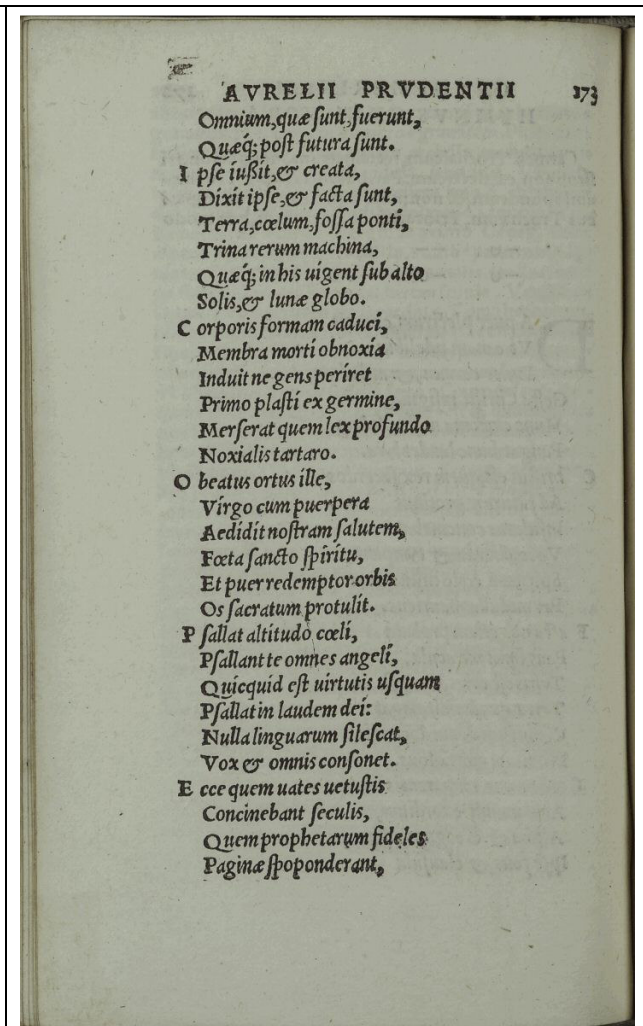 AVRELII PRVDENTII 173
Omnium, quæ sunt, fuerunt,
Quæq; post futura sunt.
I pse iußit, & creata,
Dixit ipse, & facta sunt,
Terra, cœlum, fossa ponti,
Trina rerum machina,
Quæq; in his uigent sub alto
Solis, & lunæ globo.
C orporis formam caduci,
Membra morti obnoxia
Induit ne gens periret
Primo plasti ex germine,
Merserat quem lex profundo
Noxialis tartaro.
O beatus ortus ille,
Virgo cum puerpera
Aedidit nostram salutem,
Fœta sancto spiritu,
Et puer redemptor orbis
Os sacratum protulit.
P sallat altitudo cœli,
Psallant te omnes angeli,
Quicquid est uirtutis usquam
Psallat in laudem dei:
Nulla linguarum silescat,
Vox & omnis consonet.
E cce quem uates uetustis
Concinebant seculis,
Quem prophetarum fideles
Paginæ spoponderant,